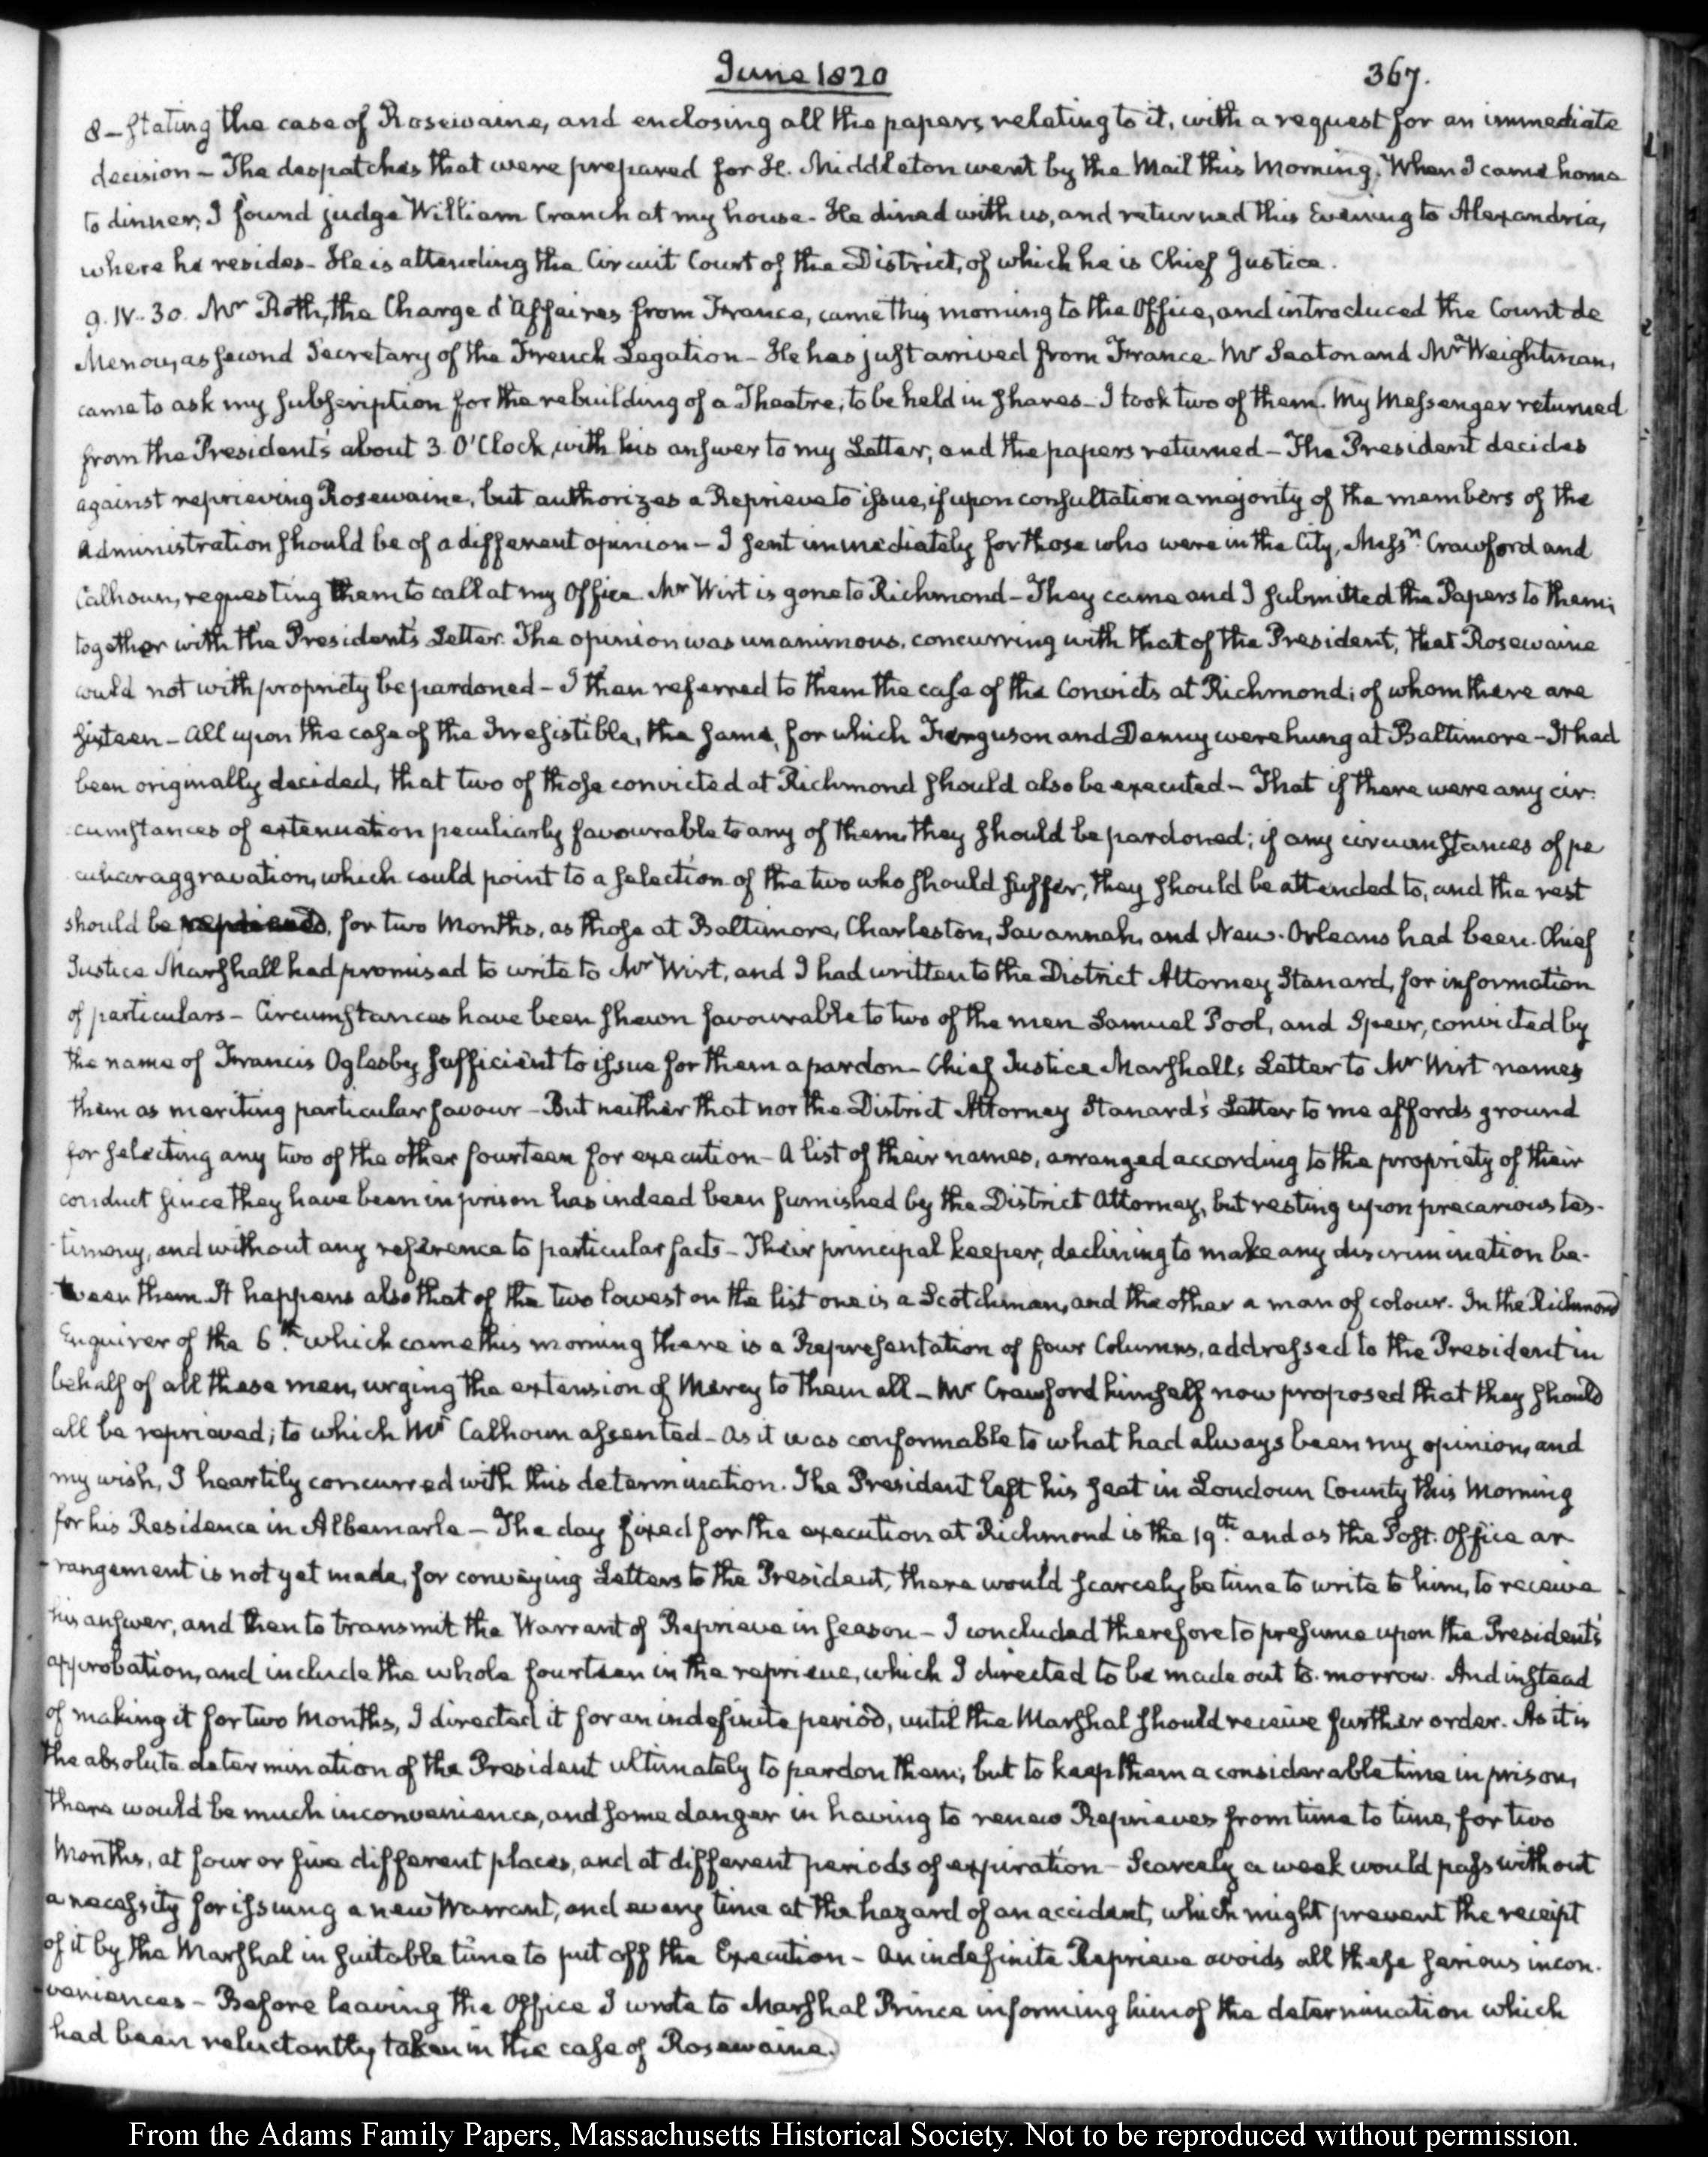 June 1820
367.
8 – Stating the case of Rosewaine, and enclosing all the papers relating to it, with a request for an immediate
decision – The despatches that were prepared for H. Middleton went by the Mail this Morning. When I came home
to dinner, I found judge William Cranch at my house. He dined with us, and returned this Evening to Alexandria,
where he resides – He is attending the Circuit Court of the District, of which he is Chief Justice.
9. IV. 30. Mr Roth, the Charge d'Affaires from France, came this morning to the Office, and introduced the Count de
Menou, as second Secretary of the French Legation – He has just arrived from France. Mr Seaton and Mr Weightman,
came to ask my subscription for the rebuilding of a Theatre; to be held in shares – I took two of them. My Messenger returned
from the President's about 3 O'Clock, with his answer to my Letter, and the papers returned – The President decides
against reprieving Rosewaine, but authorizes a Reprieve to issue, if upon consultation a majority of the members of the
Administration should be of a different opinion – I sent immediately for those who were in the City, Messrs. Crawford and
Calhoun, requesting them to call at my Office. Mr Wirt is gone to Richmond – They came and I submitted the Papers to them;
together with the President's Letter. The opinion was unanimous, concurring with that of the President, that Rosewaine
could not with propriety be pardoned – I then referred to them the case of the Convicts at Richmond; of whom there are
sixteen – All upon the case of the Irresistible, the same, for which Ferguson and Denny were hung at Baltimore – It had
been originally decided, that two of those convicted at Richmond should also be executed – That if there were any cir-
cumstances of extenuation peculiarly favourable to any of them, they should be pardoned; if any circumstances of pe
culiar aggravation, which could point to a selection of the two who should suffer, they should be attended to, and the rest
should be reprieved, for two Months, as those at Baltimore, Charleston, Savannah, and New-Orleans had been. Chief
Justice Marshall had promised to write to Mr Wirt, and I had written to the District Attorney Stanard, for information
of particulars – Circumstances have been shewn favourable to two of the men Samuel Pool, and Speir, convicted by
the name of Francis Oglesby sufficient to issue for them a pardon – Chief Justice Marshall's Letter to Mr Wirt names
them as meriting particular favour – But neither that nor the District Attorney Stanard's Letter to me affords ground
for selecting any two of the other fourteen for execution – A list of their names, arranged according to the propriety of their
conduct since they have been in prison has indeed been furnished by the District Attorney, but resting upon precarious tes-
timony, and without any reference to particular facts – Their principal keeper, declining to make any discrimination be-
tween them. It happens also that of the two lowest on the list one is a Scotchman, and the other a man of colour. In the Richmond
Enquirer of the 6th. which came this morning there is a Representation of four Columns, addressed to the President in
behalf of all these men, urging the extension of Mercy to them all – Mr Crawford himself now proposed that they should
all be reprieved; to which Mr Calhoun assented – As it was conformable to what had always been my opinion, and
my wish, I heartily concurred with this determination. The President left his seat in Loudoun County this Morning
for his Residence in Albemarle – The day fixed for the execution at Richmond is the 19th. and as the Post-Office ar
rangement is not yet made, for conveying Letters to the President, there would scarcely be time to write to him, to receive
his answer, and then to transmit the Warrant of Reprieve in season – I concluded therefore to presume upon the President's
approbation, and include the whole fourteen in the reprieve, which I directed to be made out to-morrow. And instead
of making it for two Months, I directed it for an indefinite period, until the Marshal should receive further order. As it is
the absolute determination of the President ultimately to pardon them; but to keep them a considerable time in prison,
there would be much inconvenience, and some danger in having to renew Reprieves from time to time, for two
Months, at four or five different places, and at different periods of expiration – Scarcely a week would pass without
a necessity for issuing a new Warrant, and every time at the hazard of an accident, which might prevent the receipt
of it by the Marshal in suitable time to put off the Execution – An indefinite Reprieve avoids all these serious incon-
veniences – Before leaving the Office I wrote to Marshal Prince informing him of the determination which
had been reluctantly taken in the case of Rosewaine.
From the Adams Family Papers, Massachusetts Historical Society. Not to be reproduced without permission.